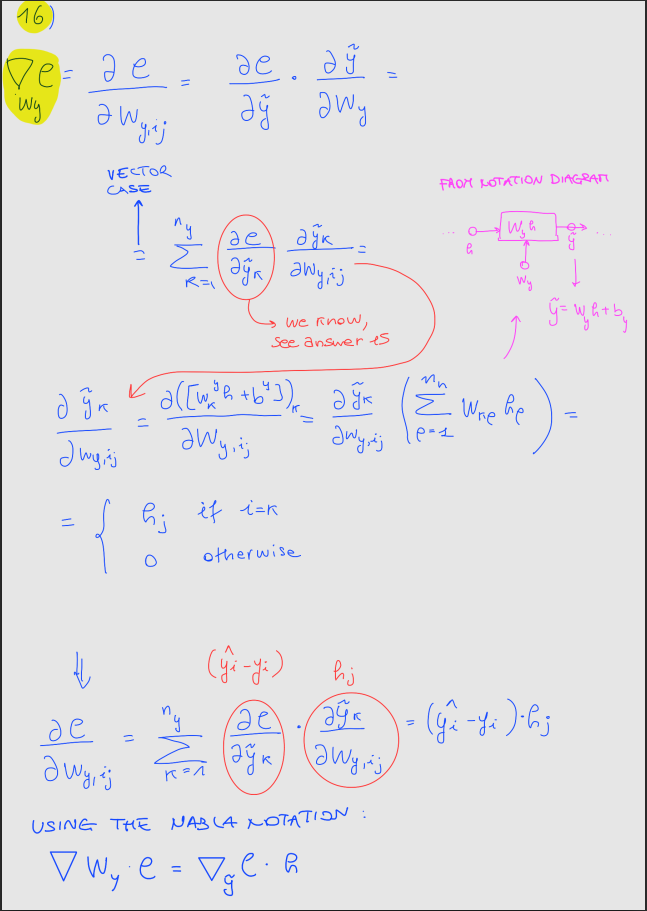 16)
∇_{Wy} ℓ = ∂ℓ / ∂W_{y,ij} = ∂ℓ / ∂ỹ · ∂ỹ / ∂W_y =
VECTOR
CASE
= Σ_{k=1}^{n_y} ∂ℓ / ∂ỹ_k ∂ỹ_k / ∂W_{y,ij} =
we know,
see answer 15
FROM NOTATION DIAGRAM
... h → W_y h → ỹ ...
W_y
ỹ = W_y h + b_y
∂ỹ_k / ∂W_{y,ij} = ∂([W_k^y h + b^y])_k / ∂W_{y,ij} = ∂ỹ_k / ∂W_{y,ij} ( Σ_{ℓ=1}^{n_h} W_{kℓ} h_ℓ ) =
= { h_j if i=k
0 otherwise
⇓
(ŷ_i - y_i) h_j
∂ℓ / ∂W_{y,ij} = Σ_{k=1}^{n_y} ∂ℓ / ∂ỹ_k · ∂ỹ_k / ∂W_{y,ij} = (ŷ_i - y_i) · h_j
USING THE NABLA NOTATION :
∇ W_y · ℓ = ∇_ỹ ℓ · h